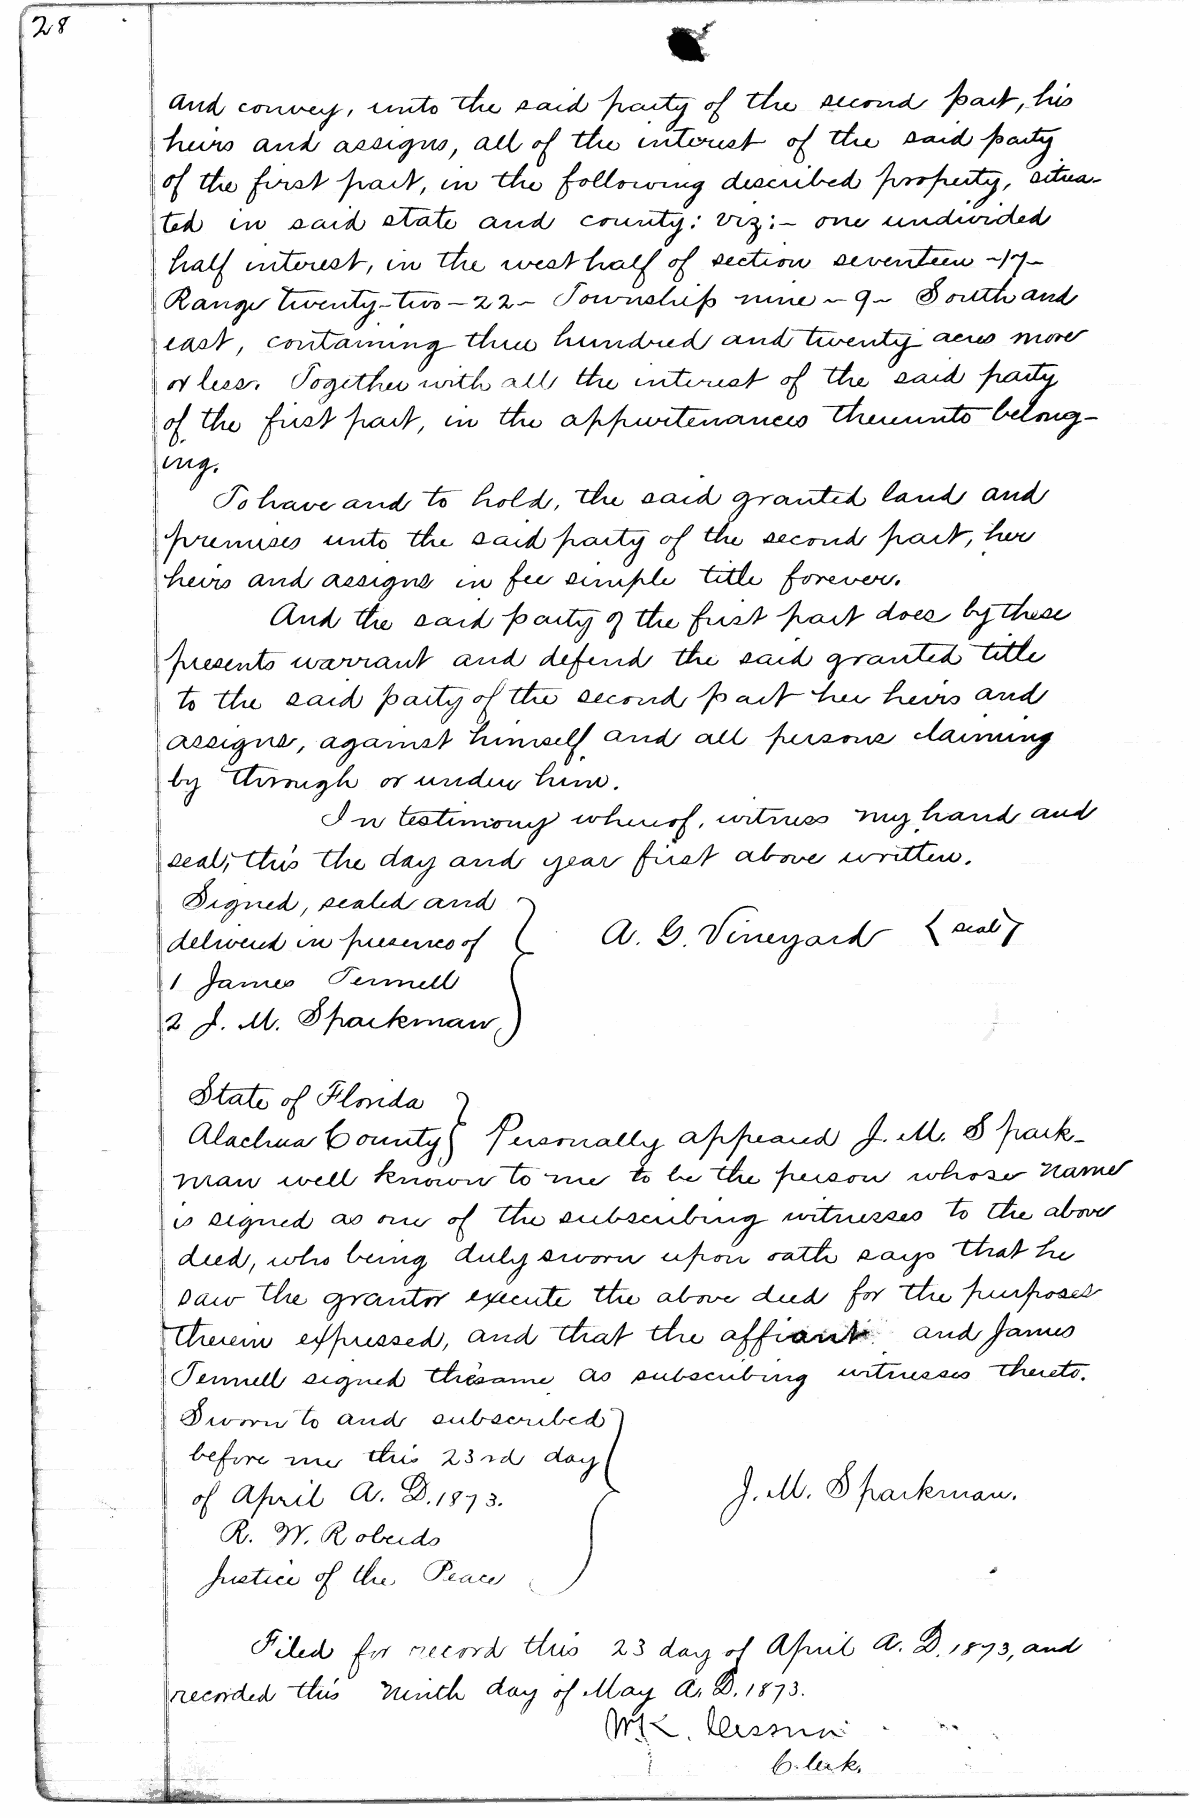 28
and convey, unto the said party of the second part, his
heirs and assigns, all of the interest of the said party
of the first part, in the following described property, situa-
ted in said state and county: viz:- one undivided
half interest, in the west half of section seventeen -17-
Range twenty-two-22- Township nine-9- South and
east, containing three hundred and twenty acres more
or less. Together with all the interest of the said party
of the first part, in the appurtenances thereunto belong-
ing.
To have and to hold, the said granted land and
premises unto the said party of the second part, her
heirs and assigns in fee simple title forever.
And the said party of the first part does by these
presents warrant and defend the said granted title
to the said party of the second part her heirs and
assigns, against himself and all persons claiming
by through or under him.
In testimony whereof, witness my hand and
seal, this the day and year first above written.
Signed, sealed and
delivered in presence of
A. G. Vineyard {seal}
1 James Tennell
2 J. M. Sparkman
State of Florida
Alachua County} Personally appeared J. M. Spark-
man well known to me to be the person whose name
is signed as one of the subscribing witnesses to the above
deed, who being duly sworn upon oath says that he
saw the grantor execute the above deed for the purposes
therein expressed, and that the affiant and James
Tennell signed the same as subscribing witnesses thereto.
Sworn to and subscribed
before me this 23rd day
of April A. D. 1873.
J. M. Sparkman.
R. W. Roberds
Justice of the Peace
Filed for record this 23 day of April A. D. 1873, and
recorded this Ninth day of May A. D. 1873.
W. K. Cessna
Clerk.